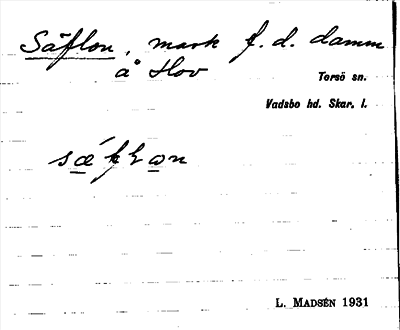 Säflon, mark f. d. damm
å Hov
Torsö sn.
Vadsbo hd. Skar. l.
L. MADSÉN 1931